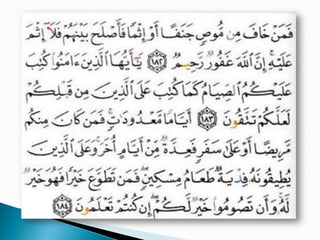 فَمَنْ خَافَ مِن مُّوصٍ جَنَفًا أَوْ إِثْمًا فَأَصْلَحَ بَيْنَهُمْ فَلَا إِثْمَ
عَلَيْهِ إِنَّ اللَّهَ غَفُورٌ رَّحِيمٌ ١٨٢ يَا أَيُّهَا الَّذِينَ ءَامَنُوا كُتِبَ
عَلَيْكُمُ الصِّيَامُ كَمَا كُتِبَ عَلَى الَّذِينَ مِن قَبْلِكُمْ
لَعَلَّكُمْ تَتَّقُونَ ١٨٣ أَيَّامًا مَّعْدُودَاتٍ فَمَن كَانَ مِنكُم
مَّرِيضًا أَوْ عَلَى سَفَرٍ فَعِدَّةٌ مِّنْ أَيَّامٍ أُخَرَ وَعَلَى الَّذِينَ
يُطِيقُونَهُ فِدْيَةٌ طَعَامُ مِسْكِينٍ فَمَن تَطَوَّعَ خَيْرًا فَهُوَ خَيْرٌ
لَّهُ وَأَن تَصُومُوا خَيْرٌ لَّكُمْ إِن كُنتُمْ تَعْلَمُونَ ١٨٤